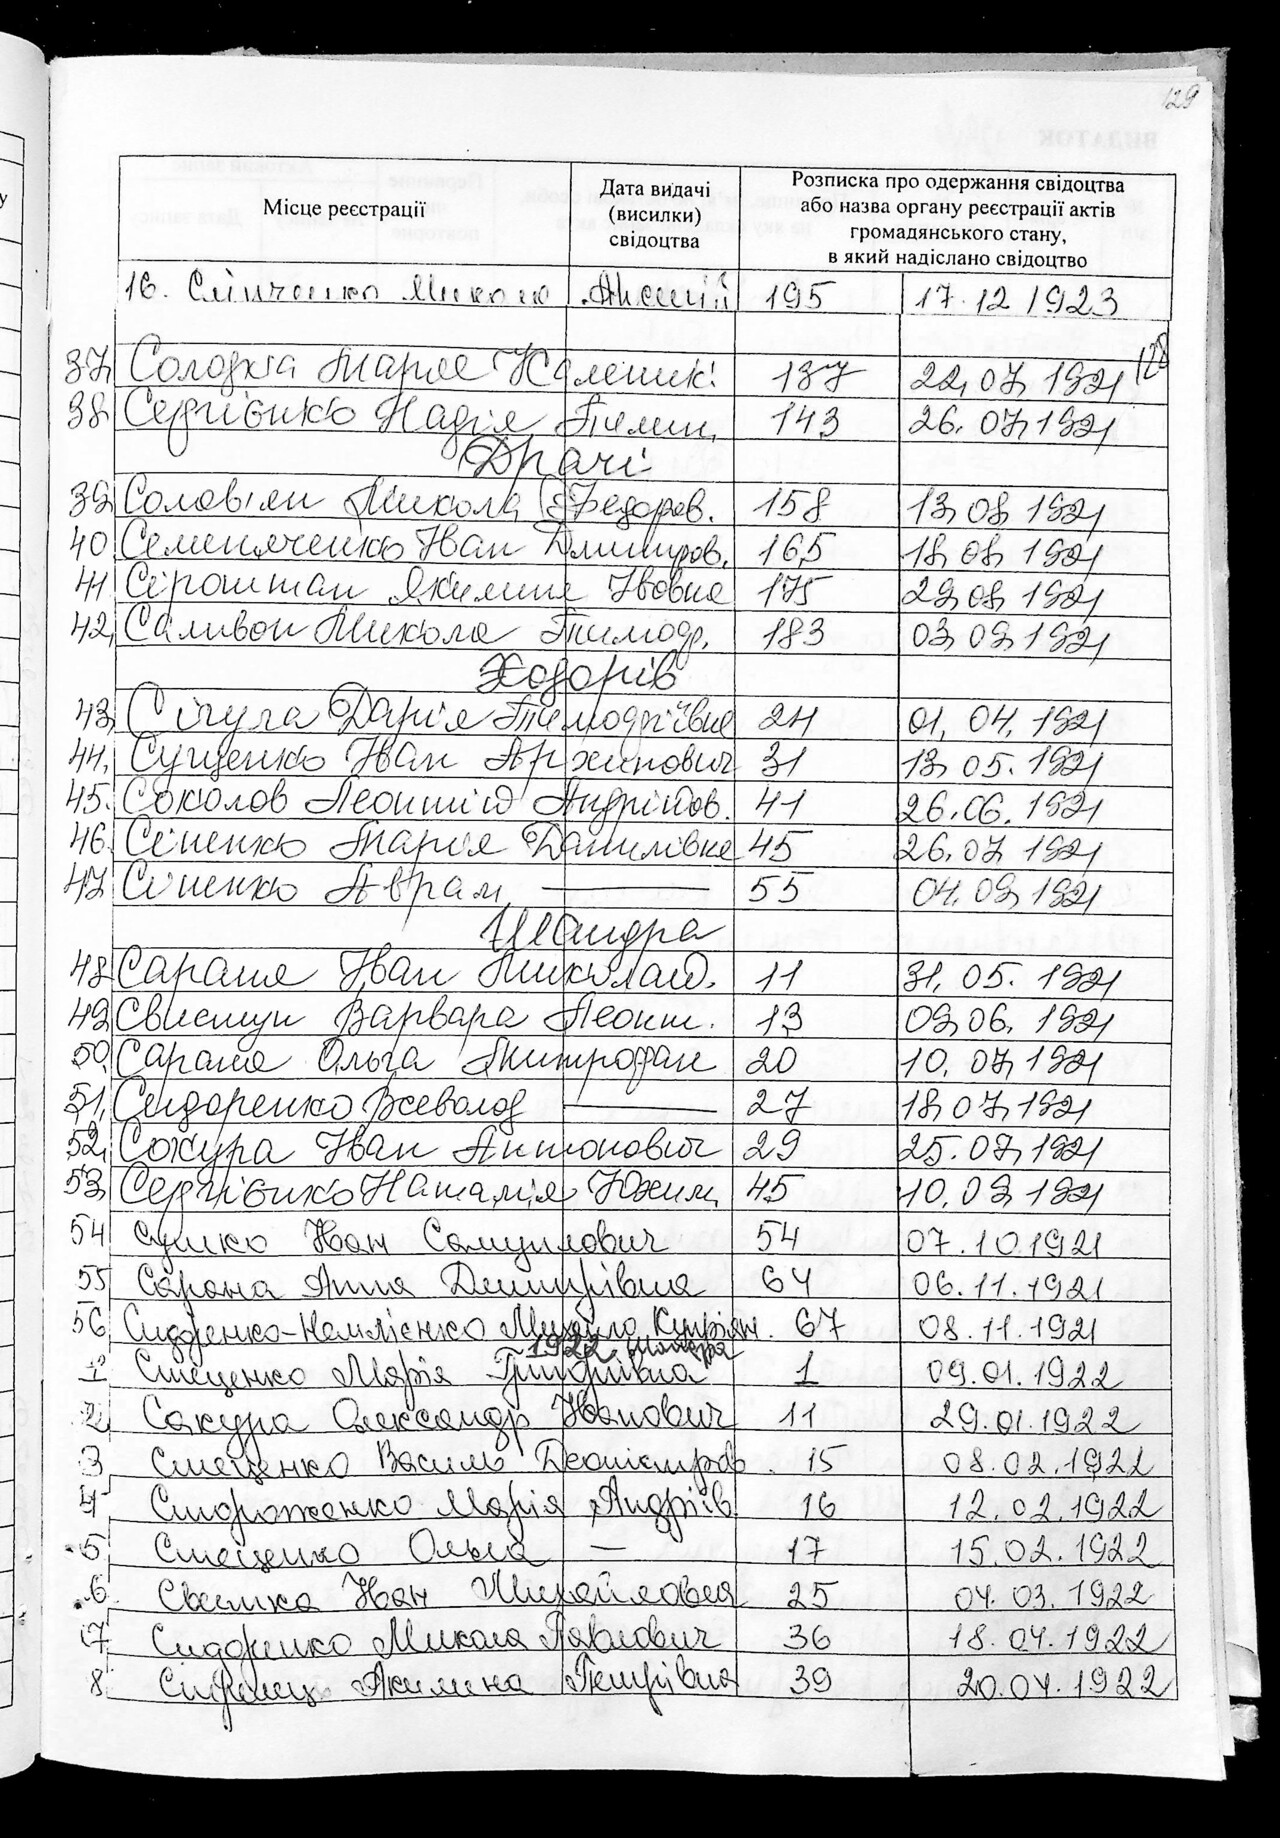 129
Місце реєстрації
Дата видачі
(висилки)
свідоцтва
Розписка про одержання свідоцтва
або назва органу реєстрації актів
громадянського стану,
в який надіслано свідоцтво
16. Микола 195 17.12 1923
128
37, Марія 137 22,07,1921
38, Сергієнко Надія Пилип, 143 26.07,1921
Драчі
39, Солов'ян Микола Федоров. 158 13,08,1921
40, Семеняченко Іван Дмитров, 165 18,08,1921
41, Сіроштан Якилина Івовна 175 29,08,1921
42, Саливон Микола Тимофр, 183 03,09,1921
Ходорів
43, Січула Дарія Тимофіївна 24 01,04,1921
44, Сущенко Іван Архипович 31 13,05.1921
45. Соколов Леонтій Андрійов. 41 26.06.1921
46. Сененко Марія Данилівна 45 26,07 1921
47, Сененко Аврам — 55 04.09,1921
Шандра
48, Сараня Іван Миколай. 11 31,05.1921
49, Свистун Варвара Леонт. 13 09,06,1921
50, Сараня Ольга Митрофан 20 10,07,1921
51, Сидоренко Всеволод — 27 18,07,1921
52, Сокура Іван Антонович 29 25.07,1921
53, Сергієнко Наталія Юхим, 45 10,09,1921
54 Сушко Іван Самуилович 54 07.10.1921
55 Сарана Анна Дмитрівна 64 06.11.1921
56 Михайло Купріян. 67 08.11.1921
1922 Шандра
1 Стеценко Марія Григорівна 1 09.01.1922
2 Сокура Олександр Іванович 11 29.01.1922
3 Стеценко Василь 15 08.02.1922
4 Стороженко Марія Андріїв. 16 12.02.1922
5 Стеценко Ольга — 17 15.02.1922
6 Іван 25 04.03.1922
7 Сидоренко Микола Павлович 36 18.04.1922
8 Акилина Петрівна 39 20.04.1922